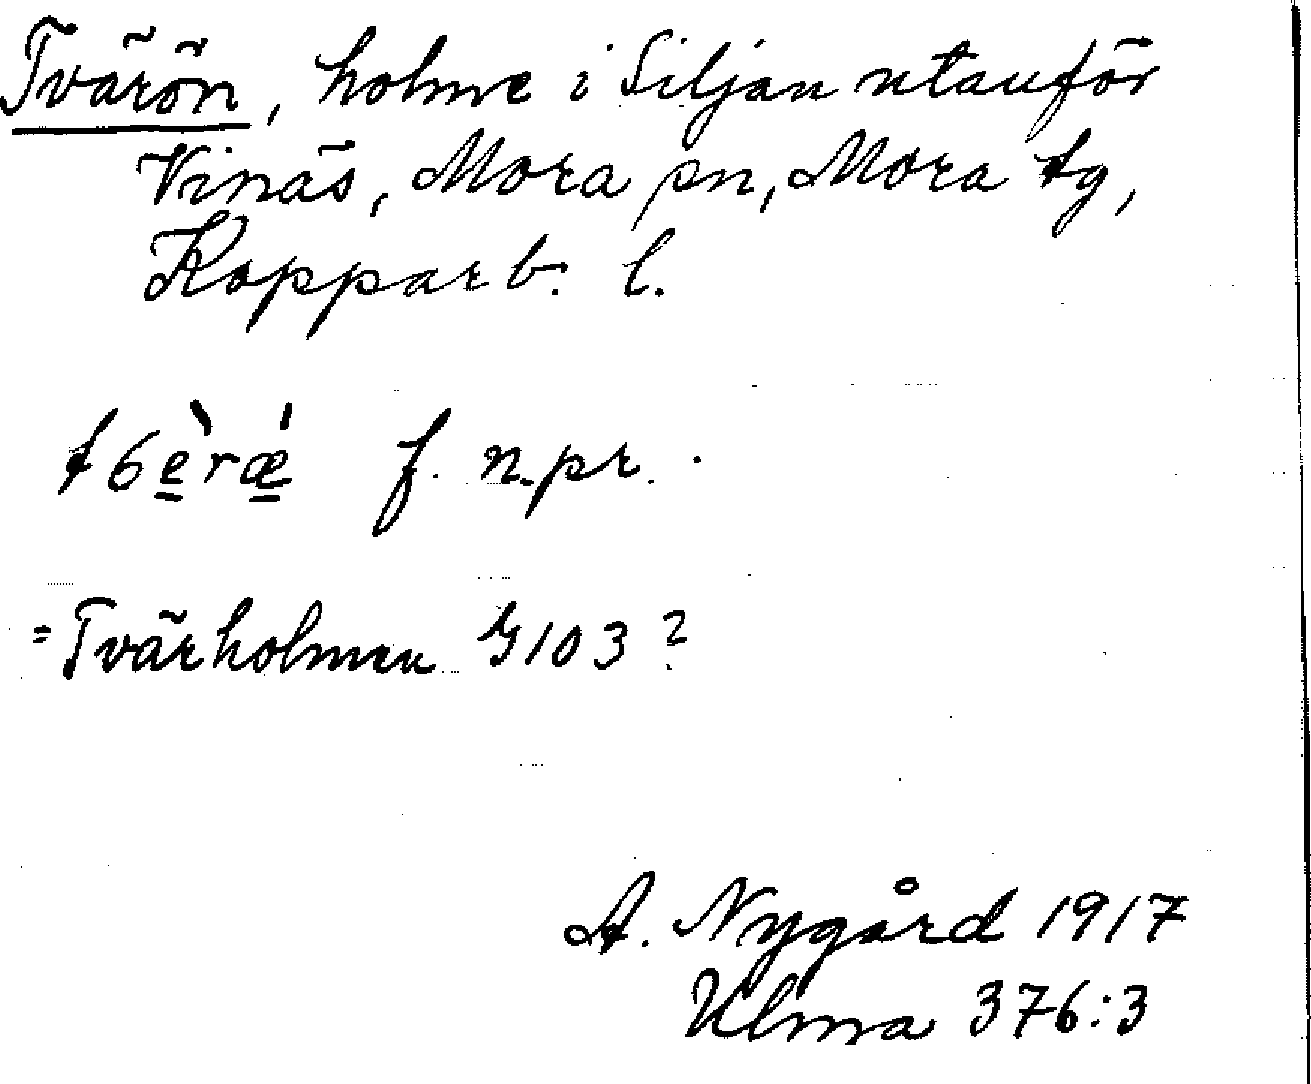 Tvärön, holme i Siljan utanför
Vinäs, Mora sn, Mora tg,
Kopparb. l.
t6è̠rǽ̠ f. n.pr.
=Tvärholmen G103?
A. Nygård 1917
Ulma 376:3